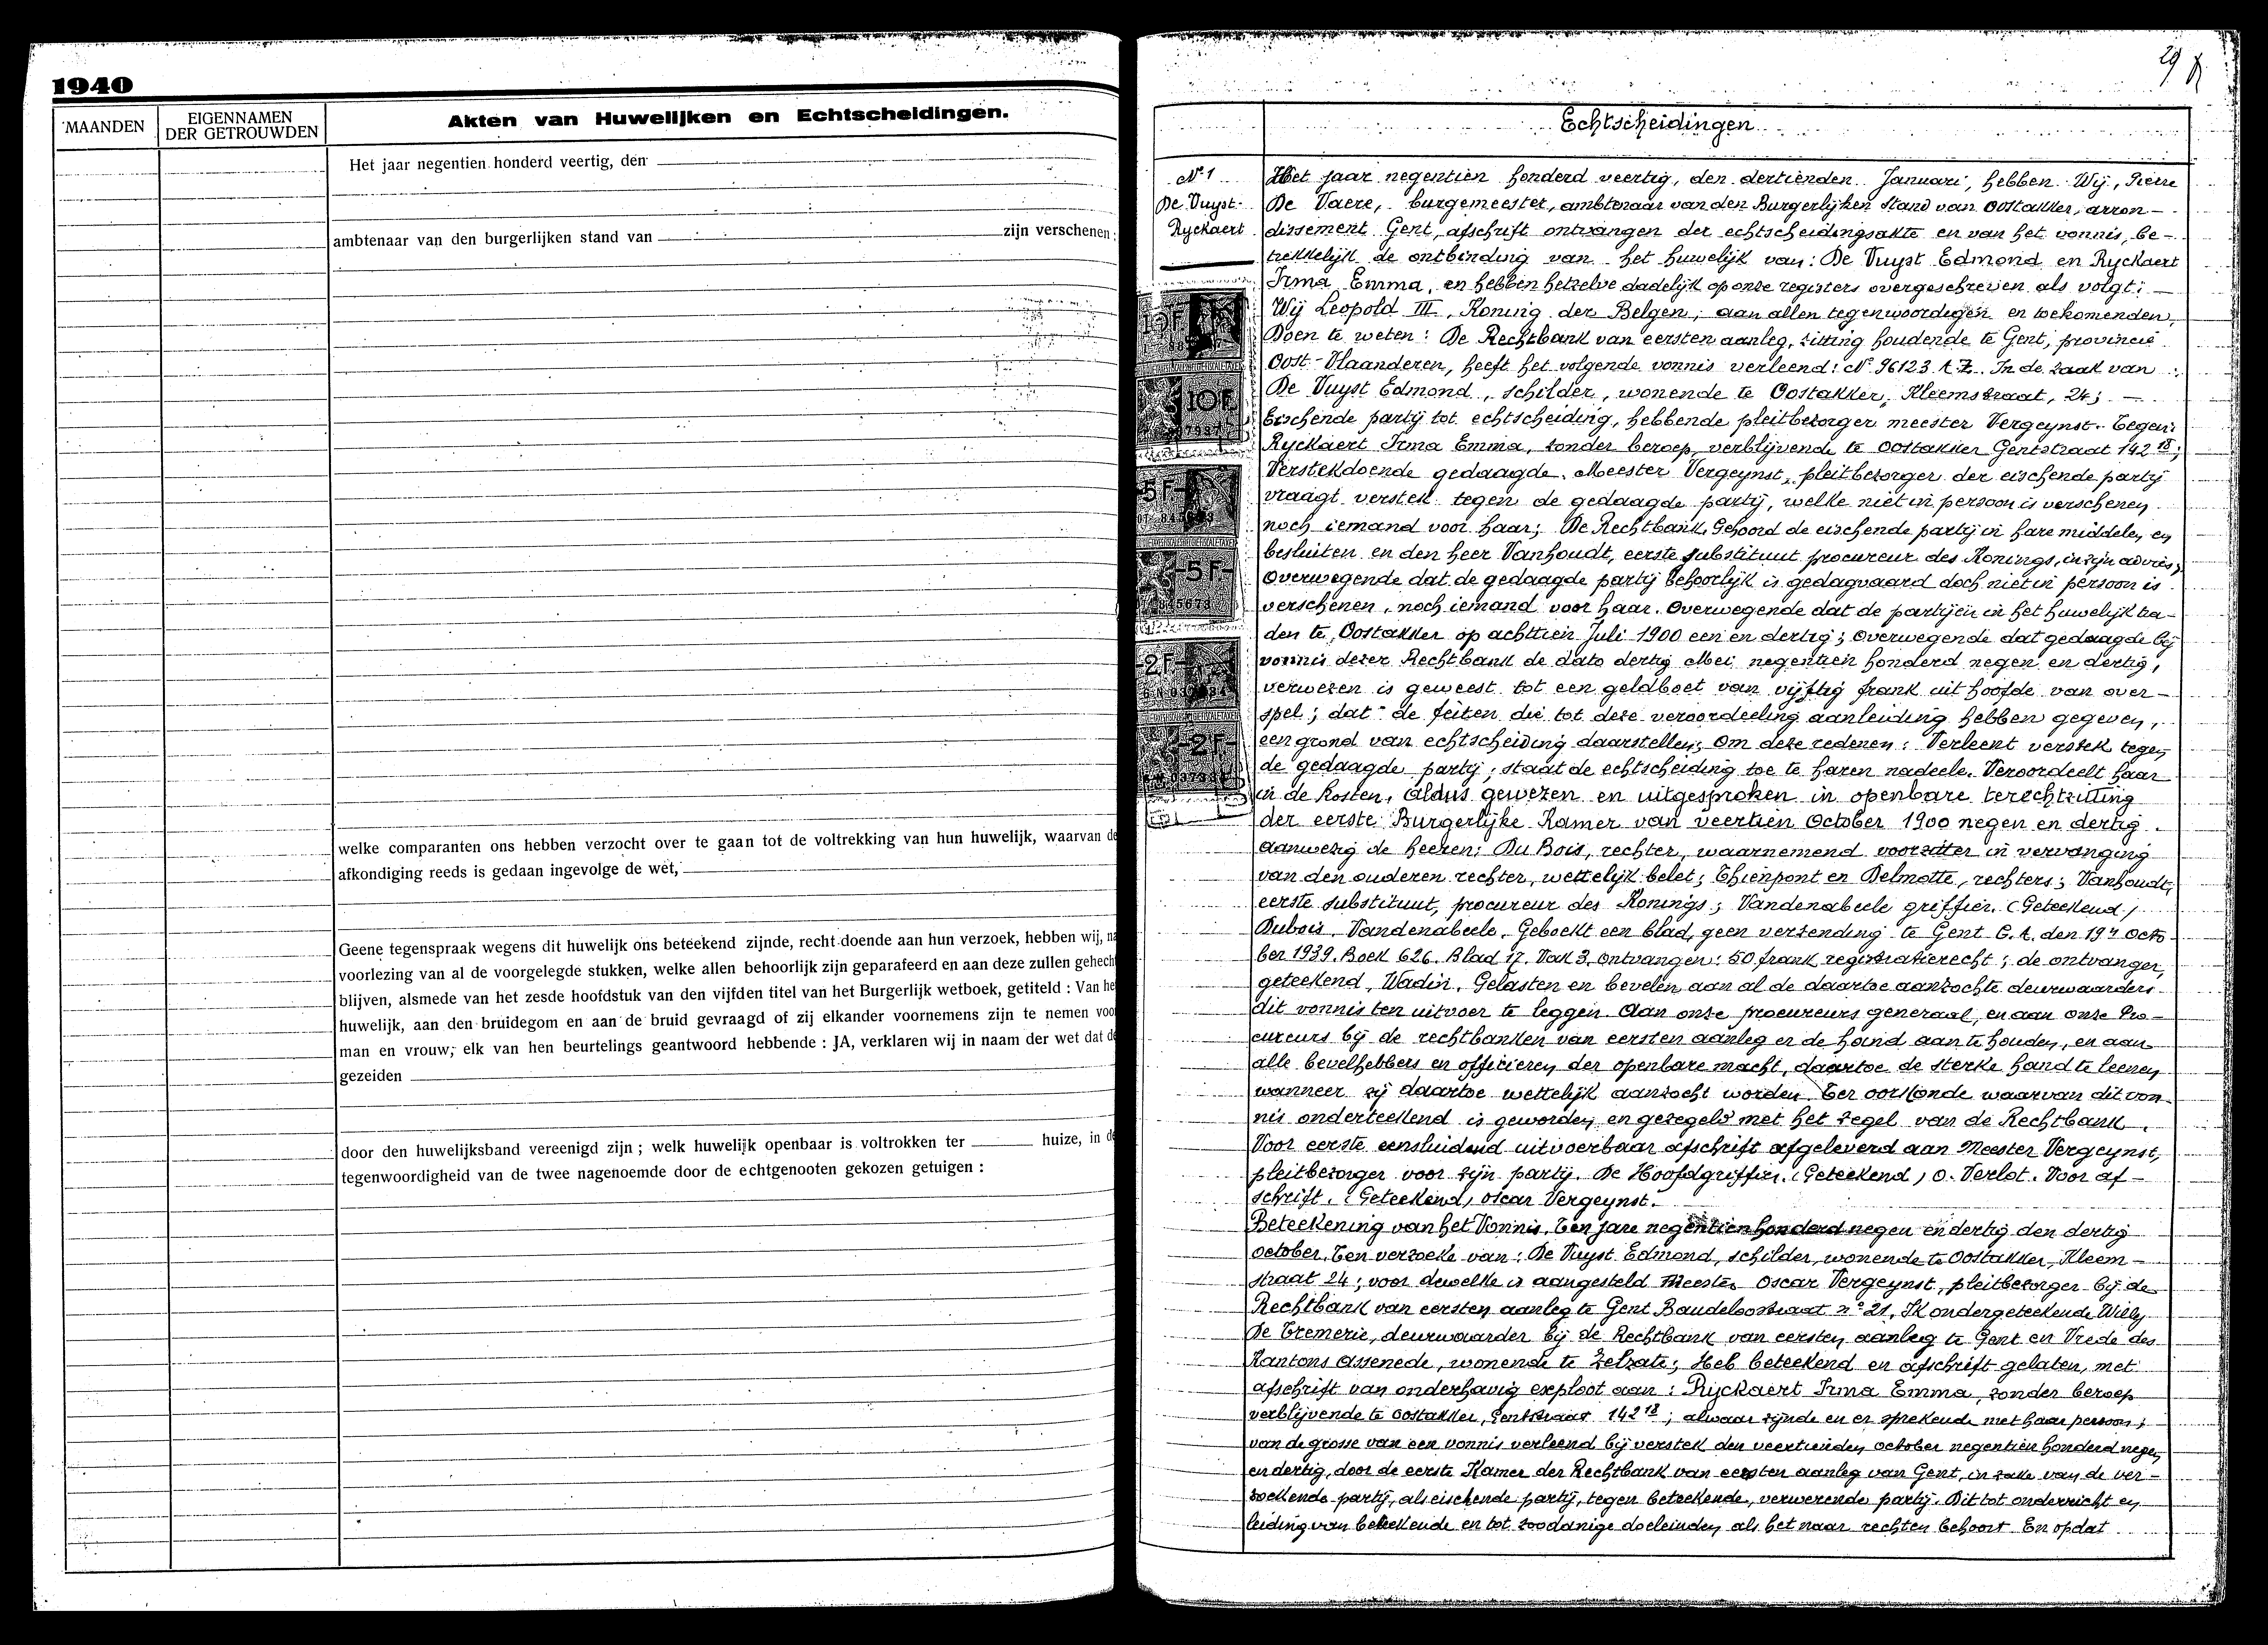 1940
MAANDEN
EIGENNAMEN
DER GETROUWDEN
Akten van Huwelijken en Echtscheidingen.
Het jaar negentien honderd veertig, den
ambtenaar van den burgerlijken stand van zijn verschenen:
welke comparanten ons hebben verzocht over te gaan tot de voltrekking van hun huwelijk, waarvan de
afkondiging reeds is gedaan ingevolge de wet,
Geene tegenspraak wegens dit huwelijk ons beteekend zijnde, recht doende aan hun verzoek, hebben wij, na
voorlezing van al de voorgelegde stukken, welke allen behoorlijk zijn geparafeerd en aan deze zullen gehecht
blijven, alsmede van het zesde hoofdstuk van den vijfden titel van het Burgerlijk wetboek, getiteld : Van he
huwelijk, aan den bruidegom en aan de bruid gevraagd of zij elkander voornemens zijn te nemen voo
man en vrouw, elk van hen beurtelings geantwoord hebbende : JA, verklaren wij in naam der wet dat de
gezeiden
door den huwelijksband vereenigd zijn ; welk huwelijk openbaar is voltrokken ter huize, in de
tegenwoordigheid van de twee nagenoemde door de echtgenooten gekozen getuigen :
29
Echtscheidingen
Nº 1
De Vuyst-
Ryckaert
10F
5F
5F
2F
2F
Het jaar negentien honderd veertig, den dertienden Januari, hebben Wij, Pierre
De Vaere, burgemeester, ambtenaar van den Burgerlijken Stand van Oostakker, arron-
dissement Gent, afschrift ontvangen der echtscheidingsakte en van het vonnis, be-
trekkelijk de ontbinding van het huwelijk van: De Vuyst Edmond en Ryckaert
Irma Emma, en hebben hetzelve dadelijk op onze registers overgeschreven als volgt:
Wij Leopold III, Koning der Belgen, aan allen tegenwoordigen en toekomenden,
Doen te weten: De Rechtbank van eersten aanleg, zitting houdende te Gent, provincie
Oost-Vlaanderen, heeft het volgende vonnis verleend: Nº 96123 A.Z. In de zaak van :
De Vuyst Edmond, schilder, wonende te Oostakker, Kleemstraat, 24; -
Eischende partij tot echtscheiding, hebbende pleitbezorger meester Vergeynst. Tegen:
Ryckaert Irma Emma, zonder beroep, verblijvende te Oostakker Gentstraat 142 18;
Verstekdoende gedaagde. Meester Vergeynst, pleitbezorger der eischende partij
vraagt verstek tegen de gedaagde partij, welke niet in persoon is verschenen
noch iemand voor haar; De Rechtbank, Gehoord de eischende partij in hare middelen en
besluiten en den heer Vanhoudt, eerste substituut procureur des Konings, in zijn advies;
Overwegende dat de gedaagde partij behoorlijk is gedagvaard doch niet in persoon is
verschenen, noch iemand voor haar. Overwegende dat de partijen in het huwelijk tra-
den te Oostakker op achttien Juli 1900 een en dertig; Overwegende dat gedaagde bij
vonnis dezer Rechtbank de dato dertig Mei negentien honderd negen en dertig,
verwezen is geweest tot een geldboet van vijftig frank uit hoofde van over-
spel; dat de feiten die tot deze veroordeeling aanleiding hebben gegeven,
een grond van echtscheiding daarstellen; Om deze redenen: Verleent verstek tegen
de gedaagde partij; staat de echtscheiding toe te haren nadeele. Veroordeelt haar
in de kosten, Aldus gewezen en uitgesproken in openbare terechtzitting
der eerste Burgerlijke Kamer van veertien October 1900 negen en dertig.
Aanwezig de heeren: Du Bois, rechter, waarnemend voorzitter in vervanging
van den ouderen rechter, wettelijk belet; Thienpont en Delmotte, rechters; Vanhoudt,
eerste substituut, procureur des Konings; Vandenabeele griffier. (Geteekend)
Dubois, Vandenabeele. Geboekt een blad, geen verzending te Gent G.A. den 19n Octo-
ber 1939. Boek 626. Blad 17. Vak 3. ontvangen: 50 frank registratierecht; de ontvanger,
geteekend, Wadin. Gelasten en bevelen aan al de daartoe aanzochte deurwaarders
dit vonnis ten uitvoer te leggen. Aan onze procureurs generaal, en aan onze Pro-
cureurs bij de rechtbanken van eersten aanleg er de hand aan te houden, en aan
alle bevelhebbers en officieren der openbare macht, daartoe de sterke hand te leenen
wanneer zij daartoe wettelijk aanzocht worden. Ter oorkonde waarvan dit von-
nis onderteekend is geworden en gezegeld met het zegel van de Rechtbank.
Voor eerste eensluidend uitvoerbaar afschrift afgeleverd aan Meester Vergeynst,
pleitbezorger voor zijn partij. De Hoofdgriffier. (Geteekend) O. Verlot. Voor af-
schrift. (Geteekend) Oscar Vergeynst.
Beteekening van het Vonnis. Ten jare negentien honderd negen en dertig den dertig
october. Ten verzoeke van: De Vuyst Edmond, schilder, wonende te Oostakker, Kleem-
straat 24; voor dewelke is aangesteld Meester Oscar Vergeynst, pleitbezorger bij de
Rechtbank van eersten aanleg te Gent Baudeloostraat nº 21. Ik ondergeteekende Willy
De Tremerie, deurwaarder bij de Rechtbank van eersten aanleg te Gent en Vrede des
Kantons Assenede, wonende te Zelzate; Heb beteekend en afschrift gelaten, met
afschrift van onderhavig exploot aan: Ryckaert Irma Emma, zonder beroep
verblijvende te Oostakker, Gentstraat 142 18; alwaar zijnde en er sprekende met haar persoon;
van de grosse van een vonnis verleend bij verstek den veertienden october negentien honderd negen
en dertig, door de eerste Kamer der Rechtbank van eersten aanleg van Gent, in zake van de ver-
zoekende partij, als eischende partij, tegen beteekende, verwerende partij. Dit tot onderricht en
leiding van beteekende en tot zoodanige doeleinden als het naar rechten behoort. En opdat